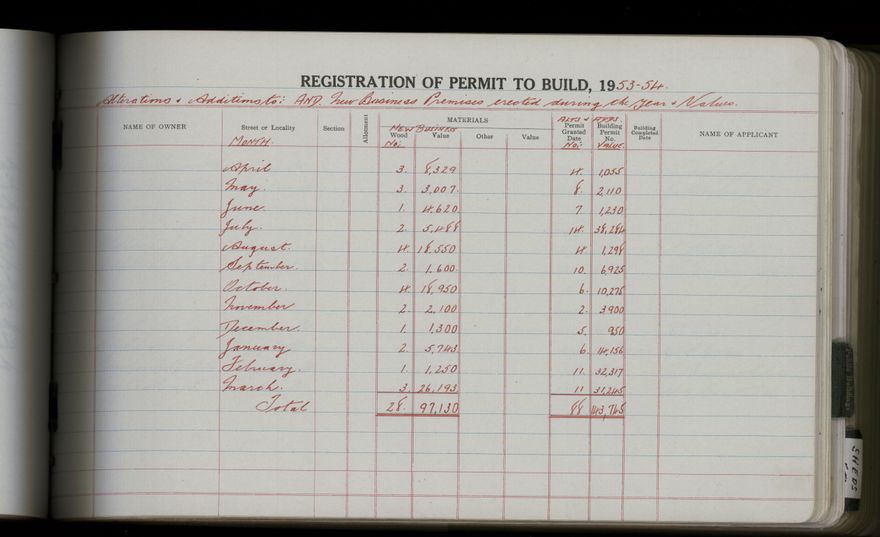 REGISTRATION OF PERMIT TO BUILD, 1953-54.
Alterations & Additions to: AND New Business Premises erected during the Year & Values.
NAME OF OWNER Street or Locality Section Allotment MATERIALS ALTS & ADDS. Permit Granted Date Building Permit No. Building Completed Date NAME OF APPLICANT
MONTH. NEW BUSINESS Wood Value Other Value No: Value.
No:
April 3. 8,329 4. 1,055
May. 3. 3,007. 8. 2,110
June. 1. 4,620 7. 1,230
July. 2. 5,488 14. 38,284
August. 4. 18,550 4. 1,298
September. 2. 1,600. 10. 6,925
October. 4. 18,950 6. 10,275
November 2. 2,100 2. 3900
December. 1. 1,300 5. 950
January 2. 5,743 6. 14,156
February. 1. 1,250 11. 32,317
March. 3. 26,193 11 31,245
Total 28. 97,130 88 143,745
SHEDS